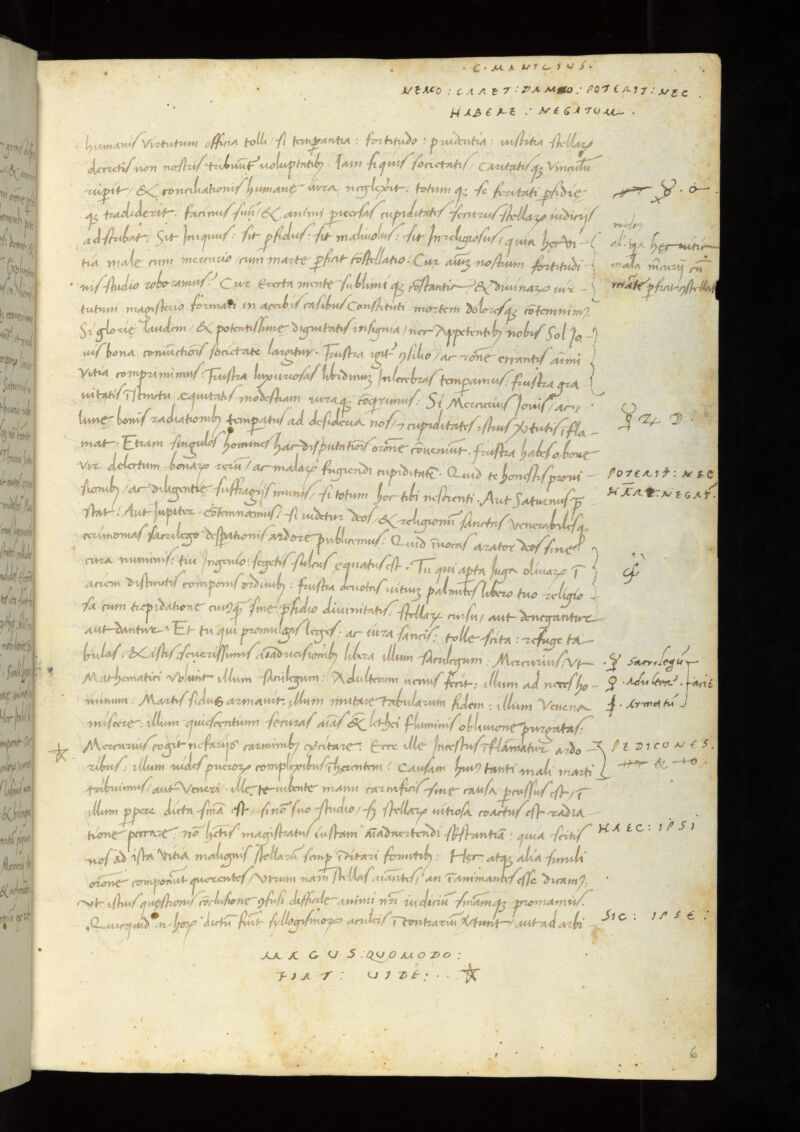 C. MANILIUS.
NEMO : CARET : DAMNO : POTERIT : NEC
HABERE : NEGATUM .
humanis virtutum officia tolli / si temperantia : fortitudo : prudentia : iustitia stellaꝝ
decretis non nostris tribuunt voluptatibꝫ . Iam si quis societatis / Caritatisqꝫ vinculũ
ruperit / & conciliationis humane iura neglexerit . totum qꝫ se feritati perfidie
qꝫ tradiderit : facinus suũ & animi perversas cupiditates securus stellaꝝ iudicijs
adstubat . Sit Iniquus : sit perfidus : sit malivolus : sit Inreligiosus / quia hec vi
tia male cum mercurio cum marte perficit cõstellatio . Cur autẽ nostrum fortitudi
nis studio roboramus ? Cur erecta mente sublimi qꝫ constantie & divinaꝝ vir
tutum magisterio formati in acerbis casibus Constituti mortem doloresqꝫ cõtemnimꝰ
Si glorie laudem / & potentissime dignitatis insignia / nec Appetentibus nobis Sol Io
vis bona coniunctionis societate largitur . Frustra consilio / ac rõne errantis aĩmi
Vitia comprimimus : Frustra luxuriosas libidinum Inlecebras temperamus : frustra gra
vitatis ĩstinctu æquitatis modestiam iuraqꝫ coqrimus : Si Mercurius Iovis / ac
lune bonis radiationibꝫ temperatus ad desideria nos / cupiditates istius virtutis ĩfla
mat . Etiam singulos homines hac disputationis orõne cõvenimꝰ . Frustra habes o bone
Vir delectum bonaꝝ reruꝫ / ac malaꝝ fugiendi cupiditatẽ . Quid te honestis provi
sionibꝫ / ac diligentie suffragijs munis / si totum hoc tibi nescienti . Aut Saturnus p̃
stat / Aut Jupiter . Cõtemnamus / si videtur deos / & religionũ sanctas Venerabilesqꝫ
cerimonias sacrilego desperationis ardore publicemus : Quid ĩvocas arator deos sine
cura numinis : tui Ingenio segetis sulcus equatus est . Tu qui aperta Iuga olivaꝝ ĩ
aciem distinctis componis ordinibꝫ : frustra devotas vitium palmites libero tuo religio
sa cum trepidatione cum sine presidio divinitatis . stellaꝝ cursu / aut denegantur
aut dantur . Et tu qui promulgas leges : ac iura sancis : tolle scita : refuge ta
bulas / & istis severissimis ĩadversionibꝫ libera illum sacrilegum : Mercurius / Vt
Mathematici volunt illum sacrilegum : Adulterum venus fecit : illum ad neces ho
minum : Martis sidus armavit : illum mutare tabularum fidem : illum Venena
miscere : illum quiescentium securas aĩas & lethei fluminis oblivione purgatas :
Mercurius cogit nefarijs carminibꝫ excitare . Ecce ille Incestus ĩflamatur ardo
ribus : illum vides pueroꝝ complexibus ĩherentem : Causam huiꝰ tanti mali marti
tribuimus / aut Veneri . ille te iubente manu carnificis sine causa percussus est / ĩ
illum perpere dicta sñia est / si non suo studio / sꝫ stellaꝝ vitiosa coactus est radia
tione peccare . nõ licetis magistratus iustam ãadvertendi substantiã : quia scitis
nos ad ista vitia malignis stellaꝝ semp ĩcitari fomitibꝫ . Hec atqꝫ alia simili
orõne componunt querentes / Vtrum nam stellas viantes / an ĩanimantes esse dicamꝰ
Vt istius questionis cõclusione confusi difficile animi nr̃i iudicium sñiamqꝫ promamus .
Quicquid n̄ hoꝝ dictũ fuit syllogismoꝝ aculeis ĩ contrarium / aut ad arbi
MAGUS : QUOMODO :
FIAT : VIDE : . .
al. qa hec vitia
mala mercurij cũ
marte perficit constellat
♀ ♃ ☽ .
POTERIT : NEC
HABERE . NEGAT .
☿ sacrilegũ
♀ Adulterũ . facit
Armatũ
PEDICONES .
HAEC : IPSI
SIC : IPSE :
6